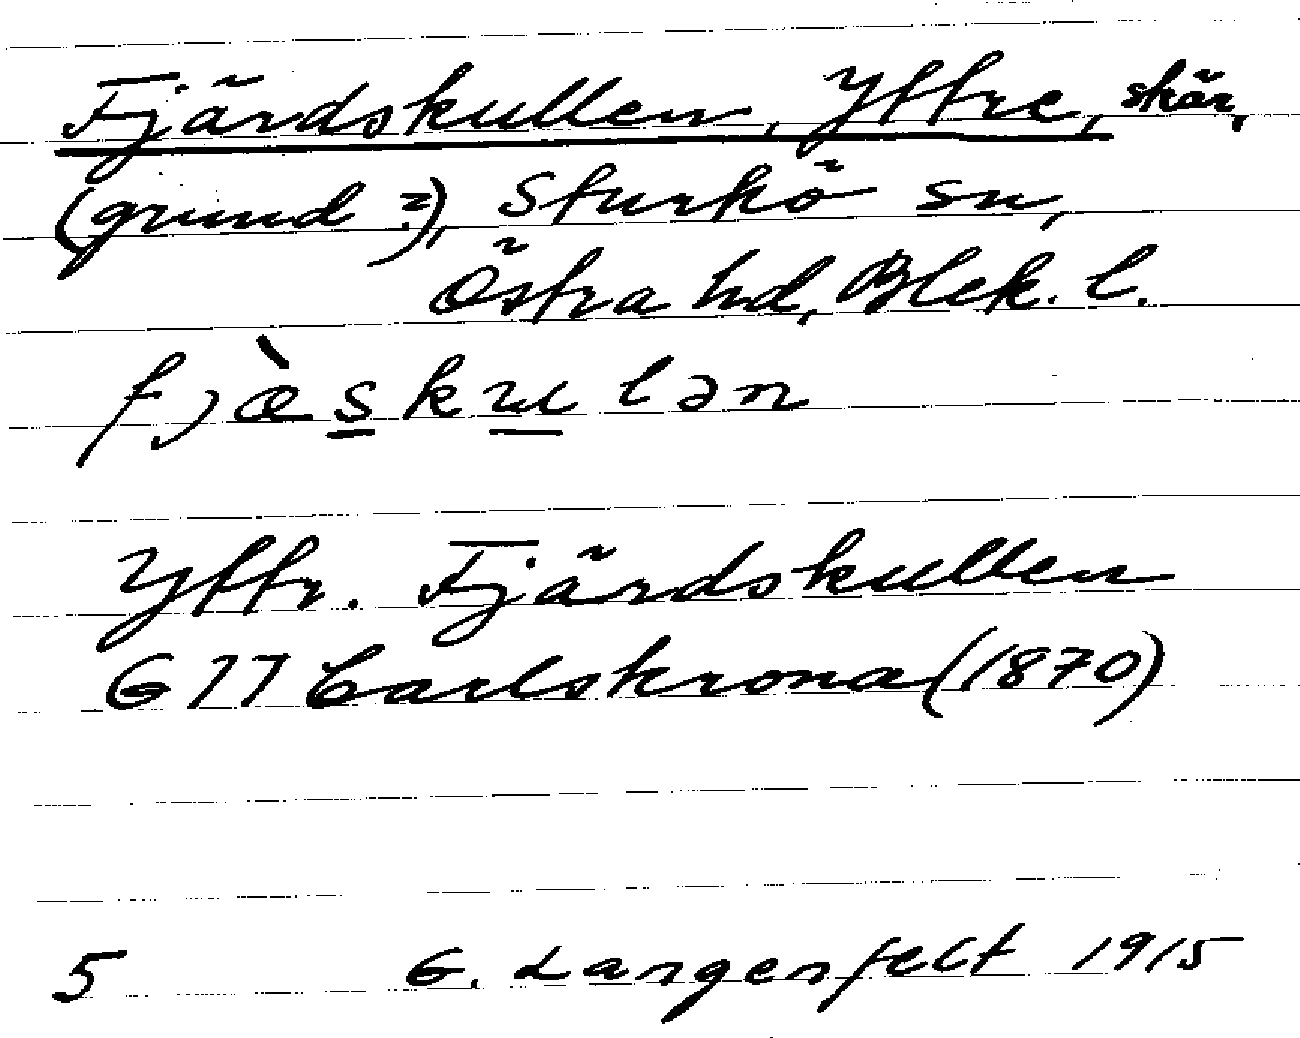 Fjärdskullen, Yttre, skär,
(grund?), Sturkö sn,
Östra hd, Blek. l.
fjæ̀skulən
Yttr. Fjärdskullen
G 77 Carlskrona (1870)
5 G. Langenfelt 1915